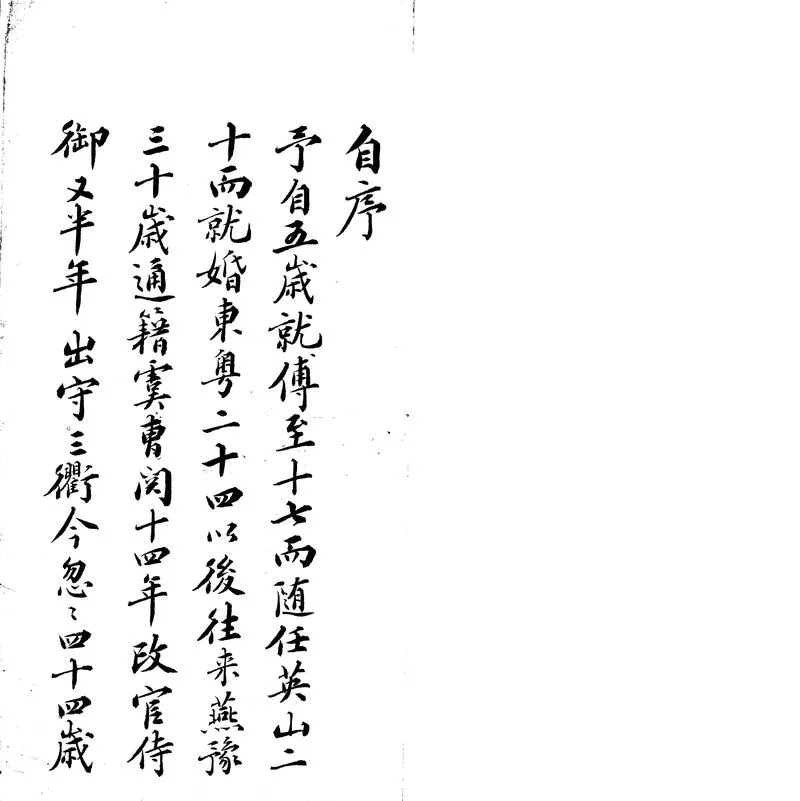 自序
予自五歳就傅至十七而随任英山二
十而就婚東粤二十四以後往来燕豫
三十歳通籍虞曹閲十四年改官侍
御又半年出守三衢今忽〻四十四歳